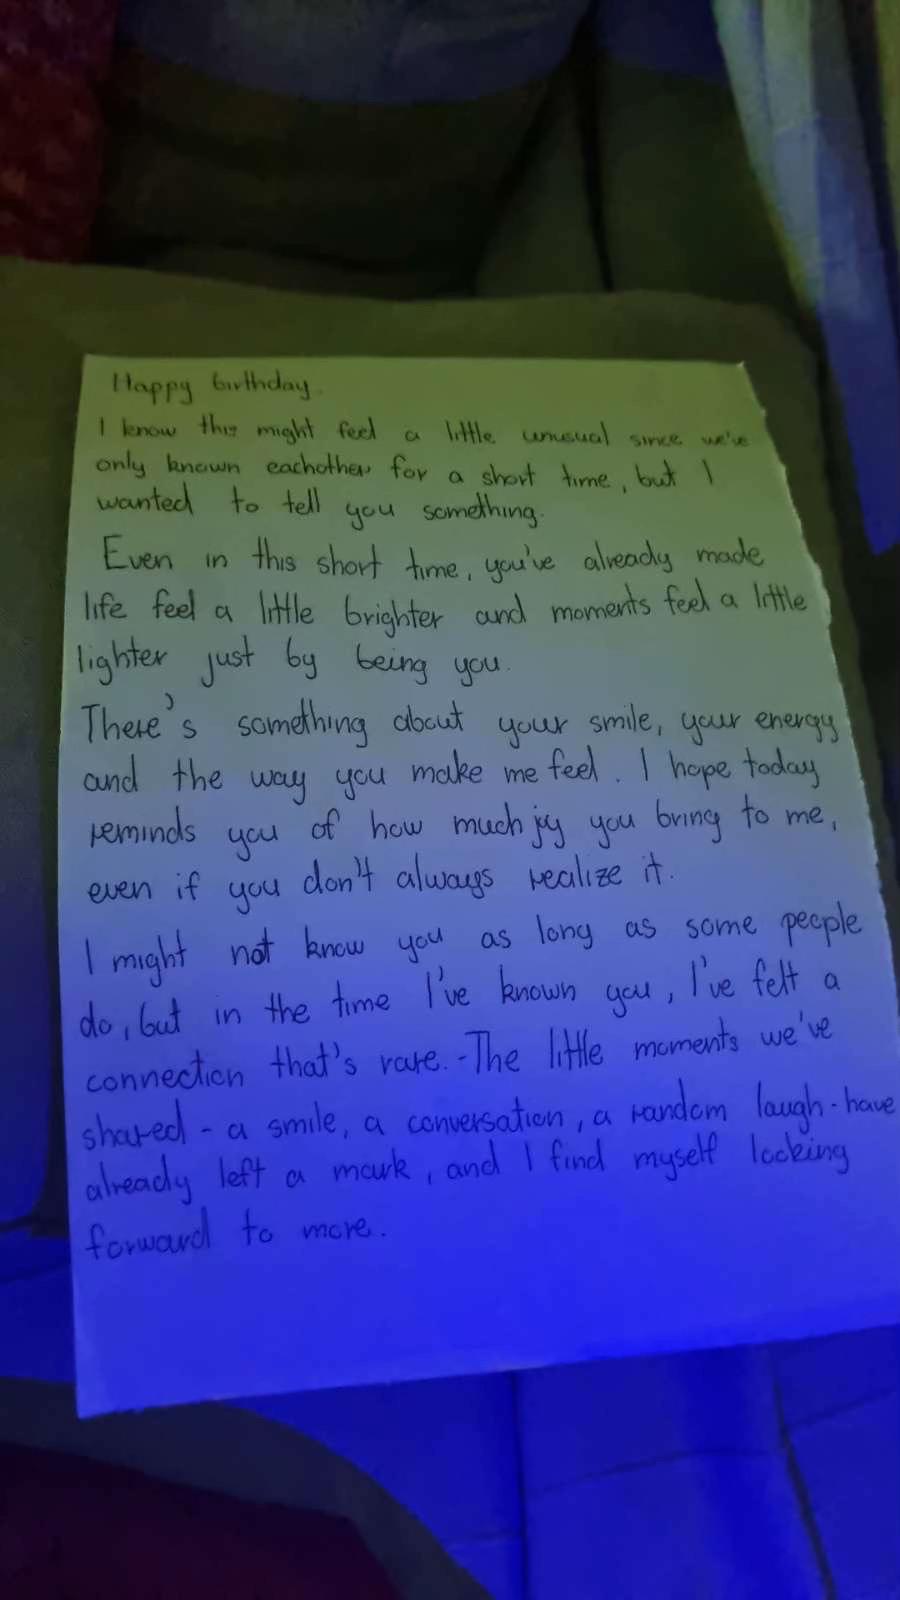 Happy birthday.
I know this might feel a little unusual since we've
only known eachother for a short time, but I
wanted to tell you something.
Even in this short time, you've already made
life feel a little brighter and moments feel a little
lighter just by being you.
There's something about your smile, your energy
and the way you make me feel. I hope today
reminds you of how much joy you bring to me,
even if you don't always realize it.
I might not know you as long as some people
do, but in the time I've known you, I've felt a
connection that's rare. -The little moments we've
shared - a smile, a conversation, a random laugh - have
already left a mark, and I find myself looking
forward to more.